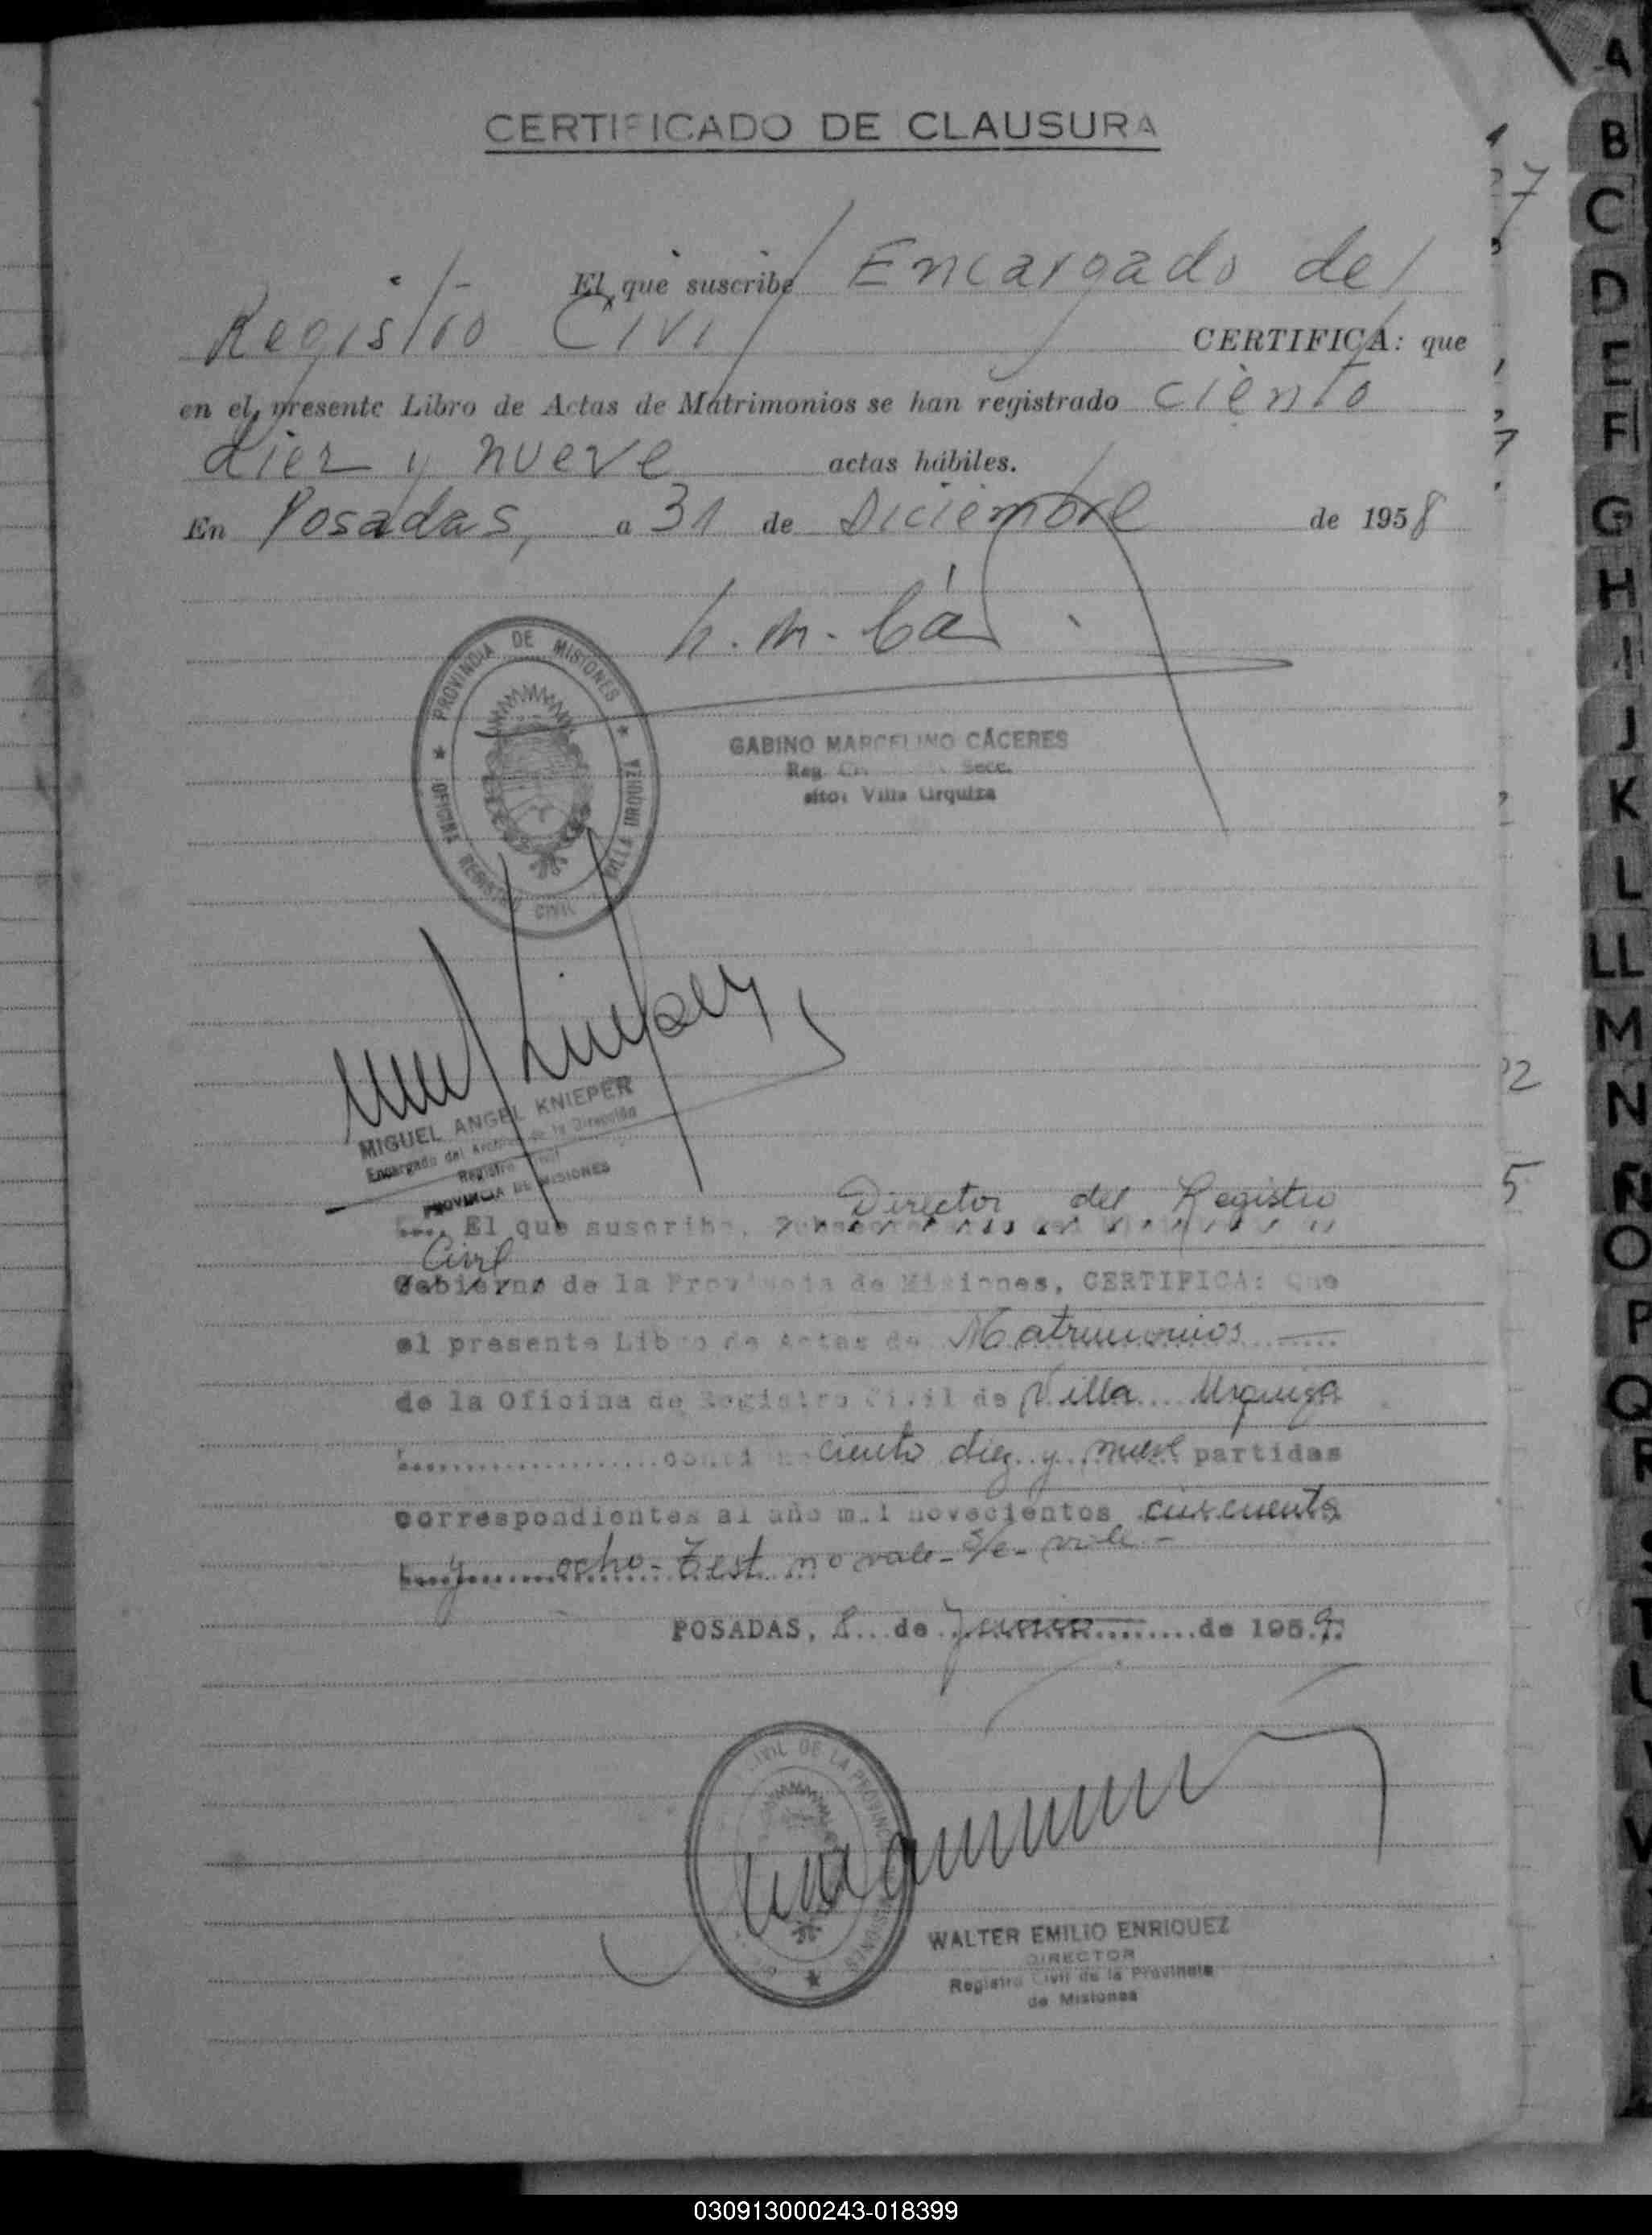 CERTIFICADO DE CLAUSURA
El que suscribe Encargado del
Registro Civil CERTIFICA: que
en el presente Libro de Actas de Matrimonios se han registrado ciento
diez y nueve actas hábiles.
En Posadas, a 31 de Diciembre de 1958
PROVINCIA DE MISIONES
OFICINA REGISTRO CIVIL VILLA URQUIZA
GABINO MARCELINO CÁCERES
Reg. Secc.
sito: Villa Urquiza
MIGUEL ANGEL KNIEPER
Encargado del Archivo de la Dirección
Registro Civil
PROVINCIA DE MISIONES
Director del Registro
El que suscribe,
Civil
Gobierno de la Provincia de Misiones, CERTIFICA: Que
el presente Libro de Actas de Matrimonios
de la Oficina de Registro Civil de Villa Urquiza
ciento diez y nueve partidas
correspondientes al año mil novecientos cincuenta
y ocho - Test no vale - S/e - vale -
POSADAS, 8 de Junio de 1959.
CIVIL DE LA PROVINCIA MISIONES
WALTER EMILIO ENRIQUEZ
DIRECTOR
Registro Civil de la Provincia
de Misiones
A
B
C
D
E
F
G
H
I
J
K
L
LL
M
N
Ñ
O
P
Q
R
S
T
U
V
7
7
22
5
030913000243-018399